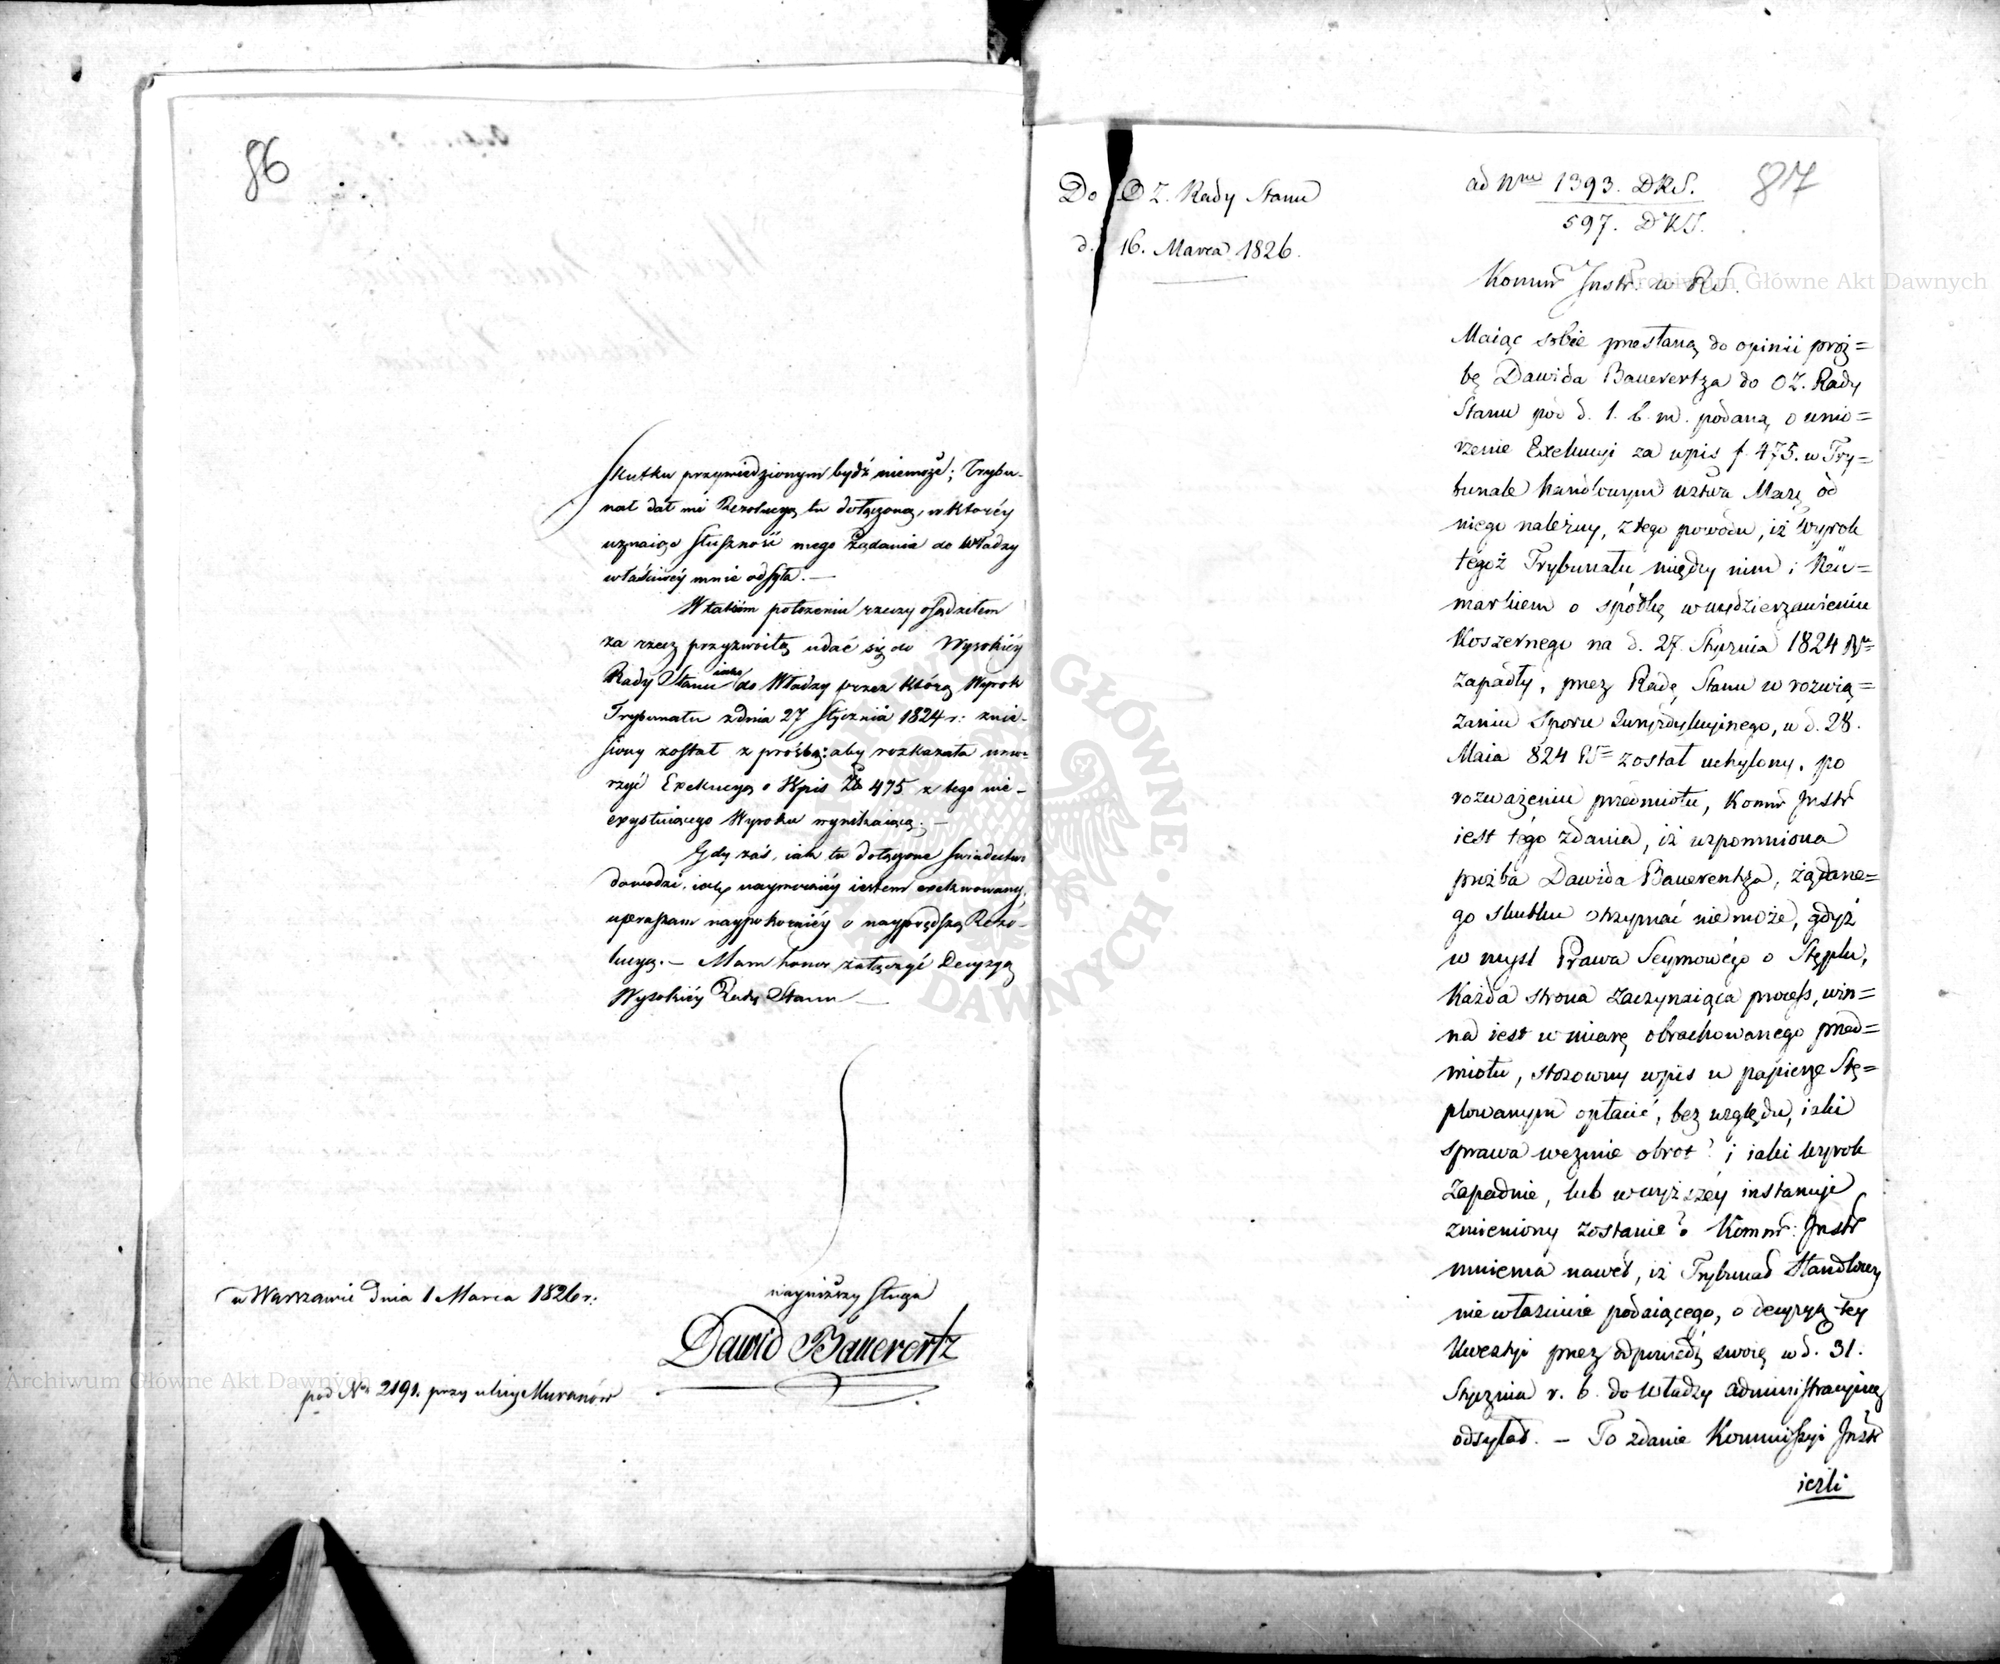 86
skutku przywiedzionym bydź niemoże; Trybu-
nał dał mi Rezolucyą tu dołączoną, w którey
uznaiąc słuszność mego żądania do Władzy
właściwéy mnie odsyła. —
W takim położeniu rzeczy osądziłem
za rzecz przyzwoitą udać się do Wysokiéy
Rady Stanu iako do Władzy przez którą Wyrok
Trybunału z dnia 27 Stycznia 1824 r: znie-
siony został z prośbą: aby rozkazała umo-
rzyć Exekucyą o Wpis Zł 475 z tego nie-
exystuiącego Wyroku wynikaiącą. —
Gdy zaś, iak tu dołączone świadectwo
dowodzi, iestem exekwowany,
upraszam naypokorniéy o nayprędszą Rezo-
lucyą. — Mam honor załączyć Decyzyą
Wysokiéy Rady Stanu —
w Warszawie dnia 1 Marca 1826 r:
nayniższy sługa
Dawid Bauerertz
pod Nr 2191. przy ulicy Muranów
Do O Z. Rady Stanu
d. 16. Marca 1826.
ad Nrum 1393. DRS.
597. DKJ.
87
Komm Instr. w RS.
Maiąc sobie przesłaną do opinii proź=
bę Dawida Bauerertza do OZ. Rady
Stanu pod d. 1. b. m. podaną o umo=
rzenie Exekucyi za wpis f 475. w Try=
bunale handlowym
niego należny, z tego powodu, iż Wyrok
tegoż Trybunału między nim i Neu=
markiem o spółkę w wydzierżawieniu
Koszernego na d. 27. Stycznia 1824 Rr=
zapadły, przez Radę Stanu w rozwią=
zaniu Sporu Juryzdykcyinego, w d. 28.
Maia 824 R= został uchylony, po
rozważeniu przedmiotu, Komm Instr
iest tego zdania, iż wspomniona
prożba Dawida Bauerertza, żądane=
go skutku otrzymać nie może, gdyż
w myśl Prawa Seymowégo o Stęplu,
Każda strona zaczynaiąca process, win=
na iest w miarę obrachowanego przed=
miotu, stosowny wpis w papierze Stę=
plowanym opłacić, bez względu, iaki
sprawa weźmie obrot? i iaki wyrok
zapadnie, lub w wyższéy instancyi
zmieniony zostanie? Komm: Instr
mniema nawet, iż Trybunał Handlowy
nie właściwie podaiącego, o decyzyą tey
Kwestyi przez odpowiedź swoią w d. 31.
Stycznia r. b. do Władzy administracyiney
odsyłał. — To zdanie Kommissyi Instr
ieżli
Archiwum Główne Akt Dawnych
Archiwum Główne Akt Dawnych
ARCHIWUM GŁÓWNE AKT DAWNYCH